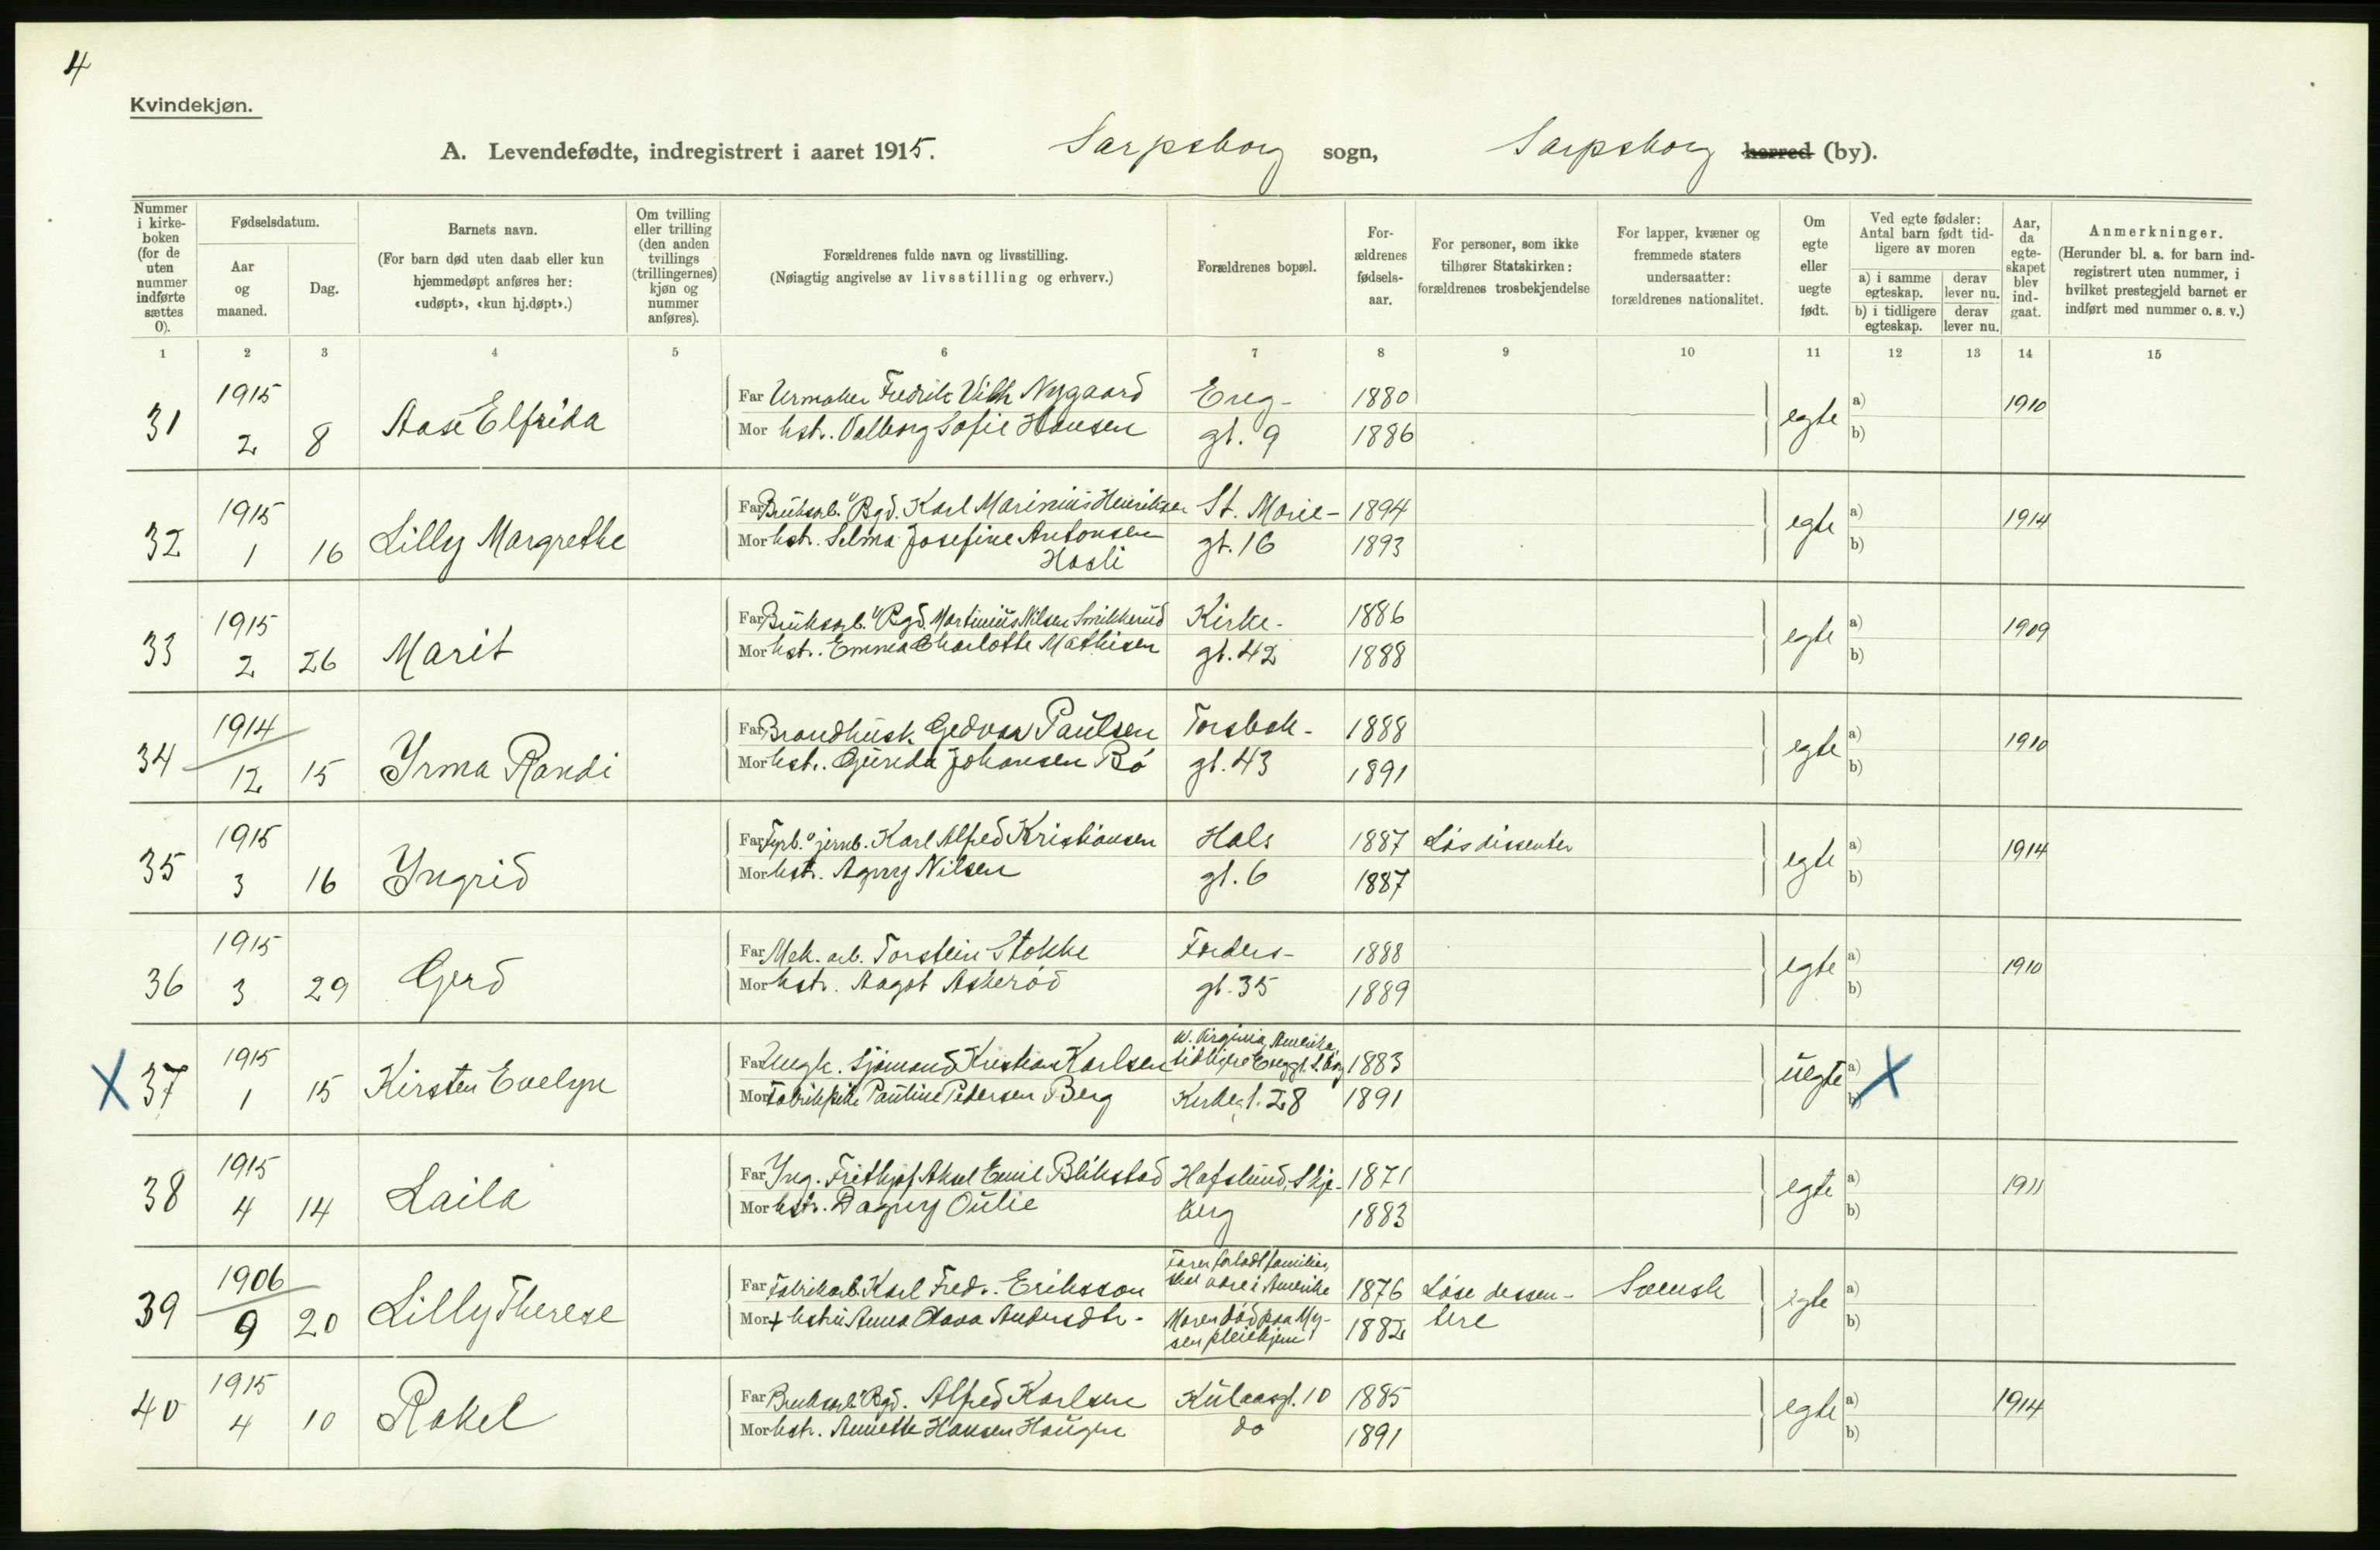 4
Kvindekjøn.
A. Levendefødte, indregistrert i aaret 1915. Sarpsborg sogn, Sarpsborg herred (by).
Nummer i kirke-boken (for de uten nummer indførte sættes 0).
Fødselsdatum.
Aar og maaned.
Dag.
Barnets navn.
(For barn død uten daab eller kun hjemmedøpt anføres her: «udøpt», «kun hj.døpt».)
Om tvilling eller trilling (den anden tvillings (trillingernes) kjøn og nummer anføres).
Forældrenes fulde navn og livsstilling.
(Nøiagtig angivelse av livsstilling og erhverv.)
Forældrenes bopæl.
For-ældrenes fødsels-aar.
For personer, som ikke tilhører Statskirken: forældrenes trosbekjendelse
For lapper, kvæner og fremmede staters undersaatter: forældrenes nationalitet.
Om egte eller uegte født.
Ved egte fødsler: Antal barn født tid-ligere av moren
a) i samme egteskap. derav lever nu.
b) i tidligere egteskap. derav lever nu.
Aar, da egte-skapet blev ind-gaat.
Anmerkninger.
(Herunder bl. a. for barn ind-registrert uten nummer, i hvilket prestegjeld barnet er indført med nummer o. s. v.)
1 2 3 4 5 6 7 8 9 10 11 12 13 14 15
31 1915 2 8 Aase Elfrida
Far Urmaker Fredrik Vilh Nygaard Eng- 1880 egte a) 1910
Mor hstr. Valborg Sofie Hansen gt. 9 1886 b)
32 1915 1 16 Lilly Margrethe
Far Bruksarb. Bgd. Karl Marinius Henriksen St. Marie- 1894 egte a) 1914
Mor hstr. Selma Josefine Antonsen gt. 16 1893 b)
Hasli
33 1915 2 26 Marit
Far Bruksarb. Bgd. Martinius Nilsen Kirke- 1886 egte a) 1909
Mor hstr. Emma Charlotte Mathisen gt. 42 1888 b)
34 1914 12 15 Yrma Randi
Far Brandkusk Paulsen Torsbek- 1888 egte a) 1910
Mor hstr. Johansen Bø gt. 43 1891 b)
35 1915 3 16 Yngrid
Far Fyrb. jernb. Karl Alfred Kristiansen Hals 1887 Løs dissenter egte a) 1914
Mor hstr. Agny Nilsen gt. 6 1887 b)
36 1915 3 29 Gerd
Far Mek. arb. Torstein Stokke Torders- 1888 egte a) 1910
Mor hstr. Aagot Askerød gt. 35 1889 b)
X 37 1915 1 15 Kirsten Evelyn
W. Virginia, Amerika,
Far Ungk. Sjømand Kristian Karlsen tidligere Enggt. S.borg 1883 uegte a) X
Mor Fabrikpike Pauline Pedersen Berg Kirkegt. 28 1891 b)
38 1915 4 14 Laila
Far Ing. Frithjof Aksel Emil Blikstad Hafslund, Skje- 1871 egte a) 1911
Mor hstr. Dagny Oulie berg 1883 b)
39 1906 9 20 Lilly Therese
Faren forladt familien,
Far Fabrikarb. Karl Fredr. Eriksson skal være i Amerika 1876 Løse dissen- Svensk egte a)
Mor + hstru Anna Andersdtr- Moren død paa My- 1882 tere b)
sen pleiehjem
40 1915 4 10 Rakel
Far Bruksarb. Bgd. Alfred Karlsen Kulaasgt. 10 1885 egte a) 1914
Mor hstr. Annette Hansen Haugen do 1891 b)